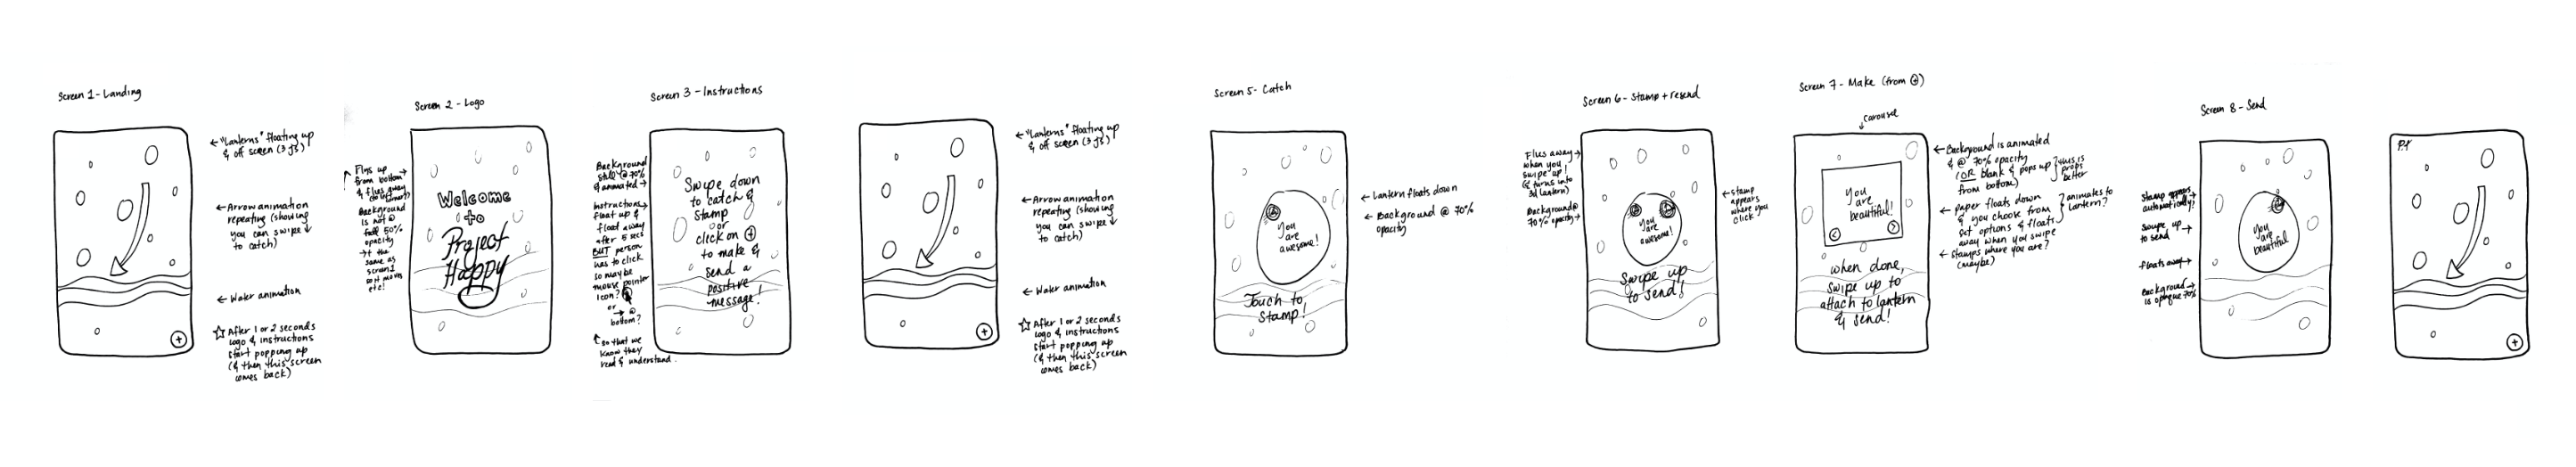 Screen 1 - Landing
← "Lanterns" floating up
& off screen (3js)
← Arrow animation
repeating (showing
you can swipe ↓
to catch)
← Water animation
☆ After 1 or 2 seconds
logo & instructions
start popping up
(& then this screen
comes back)
Screen 2 - Logo
Flys up
from bottom
& flies away
Background
is not @
50%
opacity
→ the
same as
screen 1
etc!
Welcome
to
Project
Happy
Screen 3 - Instructions
Background
still @ 70%
& animated →
instructions
float up &
float away
after 5 secs
BUT person
has to click
so maybe
mouse pointer
icon?
or
→ @
bottom?
so that we
know they
read & understand.
Swipe down
to catch &
Stamp
or
click on ⊕
to make &
send a
positive
message!
← "Lanterns" floating up
& off screen (3js)
← Arrow animation
repeating (showing
you can swipe ↓
to catch)
← Water animation
☆ After 1 or 2 seconds
logo & instructions
start popping up
(& then this screen
comes back)
Screen 5 - Catch
You
are
awesome!
Touch to
Stamp!
← Lantern floats down
← Background @ 70%
opacity
Screen 6 - Stamp + resend
Flies away →
when you
swipe up!
(& turns into
3d lantern)
Background @
70% opacity →
You
are
awesome!
Swipe up
to send!
← stamp
appears
where you
click
Screen 7 - Make (from ⊕)
carousel
You
are
beautiful!
when done,
swipe up to
attach to lantern
& send!
← Background is animated
& @ 70% opacity
(OR blank & pops up
from bottom)
this is
props
better
← paper floats down
& you choose from
set options & floats
away when you swipe
animates to
lantern?
← stamps where you are?
(maybe)
Screen 8 - Send
Stamp appears
automatically?
Swipe up
to send →
floats away →
Background →
is opaque 70%
You
are
beautiful